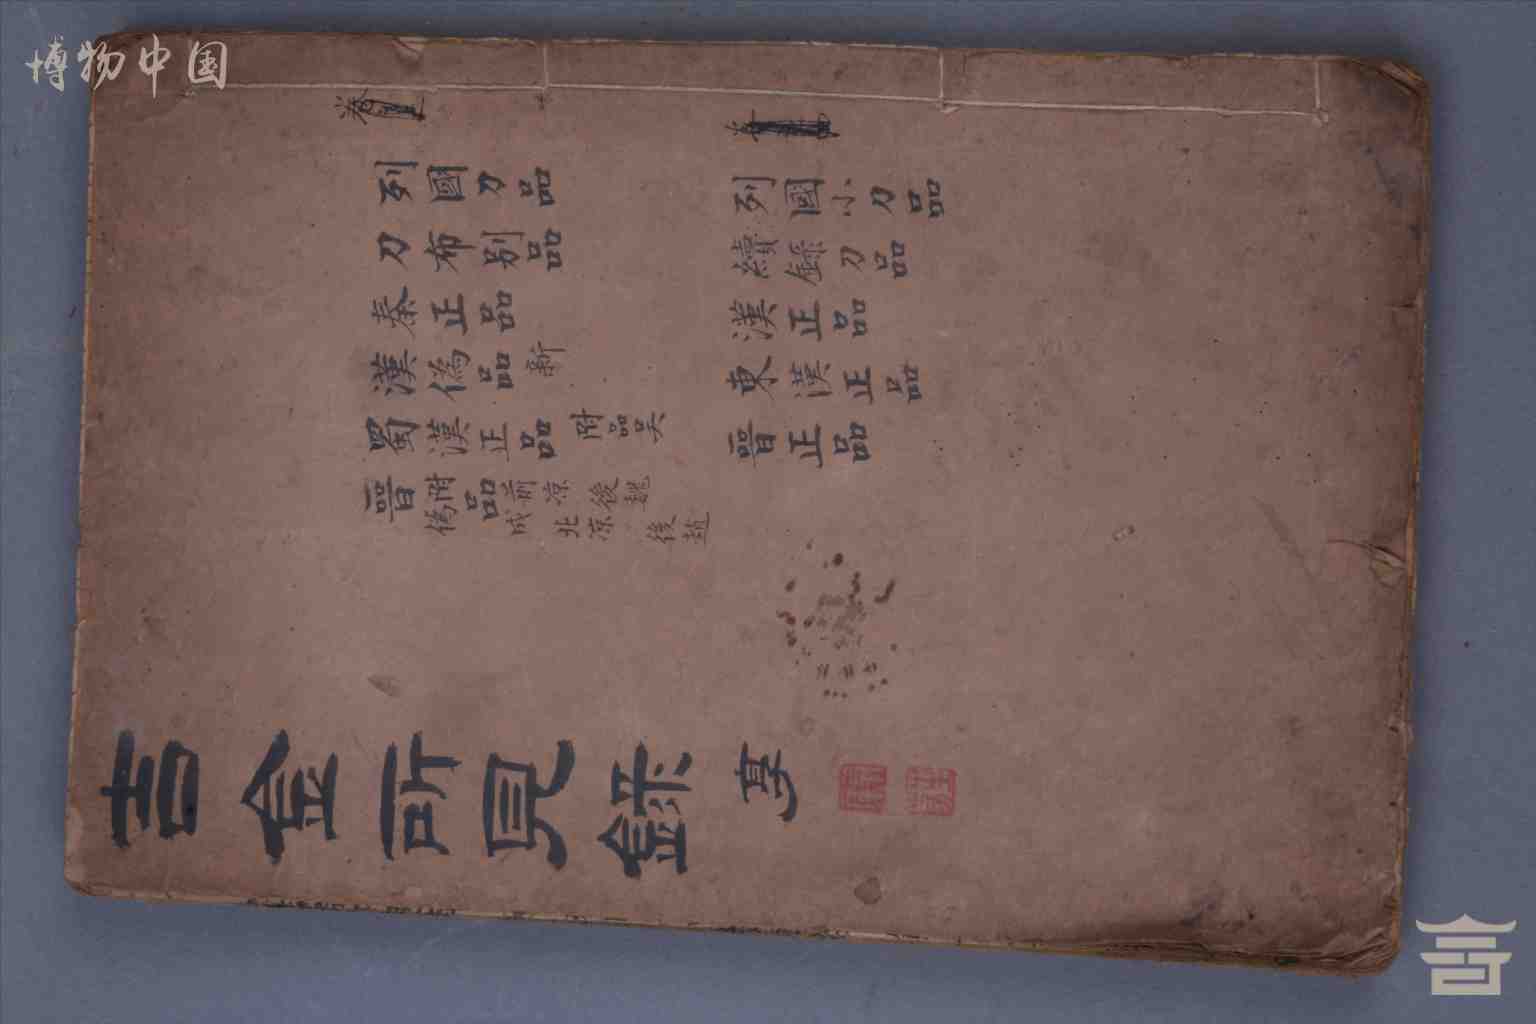 博物中国
卷
列國刀品
列國小刀品
刀布別品
續錄刀品
秦正品
漢正品
漢偽品 新
東漢正品
蜀漢正品 附品吳
晉正品
晉附偽品 前凉 後魏
成 北凉 後趙
吉金所見錄 亨